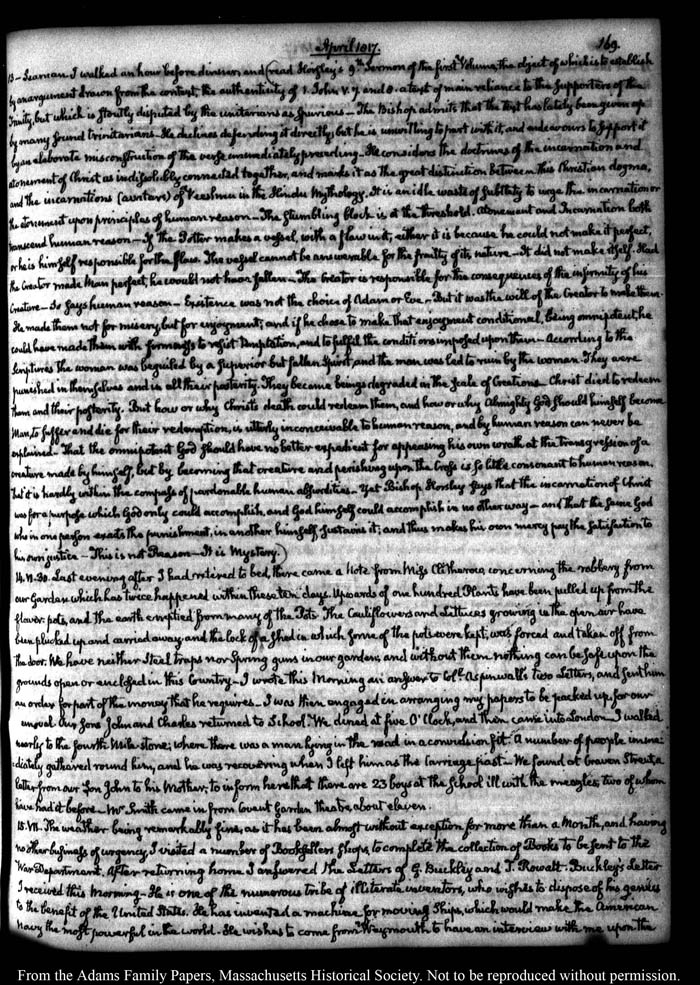 April 1817.
169.
13 – I walked an hour before dinner, and (read Horsley's 9th Sermon of the first Volume, the object of which is to establish
by an argument drawn from the context, the authenticity of 1. John V. 7. and 8. a text of main reliance to the Supporters of the
Trinity, but which is stoutly disputed by the unitarians as spurious – The Bishop admits that the text has lately been given up
by many sound trinitarians – He declines defending it directly, but he is unwilling to part with it, and endeavours to support it
by an elaborate misconstruction of the verse immediately preceding – He considers the doctrines of the incarnation and
atonement of Christ as indissolubly connected together, and marks it as the great distinction between this Christian dogma,
and the incarnations (avatars) of Veeshnu in the Hindu Mythology. It is an idle waste of subtlety to urge the incarnation or
the atonement upon principles of human reason – The stumbling block is at the threshold. Atonement and Incarnation both
transcend human reason – If the Potter makes a vessel, with a flaw in it, either it is because he could not make it perfect,
or he is himself responsible for the flaw. The vessel cannot be answerable for the frailty of its nature – It did not make itself. Had
the Creator made Man perfect, he would not have fallen – The Creator is responsible for the consequences of the infirmity of his
Creature – So says human reason – Existence was not the choice of Adam or Eve – But it was the will of the Creator to make them.
He made them not for misery, but for enjoyment; and if he chose to make that enjoyment conditional, being omnipotent, he
could have made them with firmness to resist temptation, and to fulfil the conditions imposed upon them – According to the
Scriptures the woman was beguiled by a Superior but fallen Spirit, and the man was led to ruin by the woman. They were
punished in themselves and in all their posterity. They became beings degraded in the Scale of Creation – Christ died to redeem
them and their posterity. But how or why Christ's death could redeem them, and how or why Almighty God should himself become
Man, to suffer and die for their redemption, is utterly inconceivable to human reason, and by human reason can never be
explained – That the omnipotent God should have no better expedient for appeasing his own wrath at the transgression of a
creature made by himself, but by becoming that creature and perishing upon the Cross is so little consonant to human reason,
that it is hardly within the compass of pardonable human absurdities – Yet Bishop Horsley says that the incarnation of Christ
was for a purpose which God only could accomplish, and God himself could accomplish in no other way – and that the same God
who in one person exacts the punishment, in another himself sustains it; and thus makes his own mercy pay the satisfaction to
his own justice – This is not Reason – It is Mystery.)
14. Last evening after I had retired to bed, there came a Note from Miss concerning the robbery from
our Garden which has twice happened within these ten days. Upwards of one hundred Plants have been pulled up from the
flower pots, and the earth emptied from many of the Pots. The Cauliflowers and Lettuces growing in the open air have
been plucked up and carried away and the lock of a shed in which some of the pots were kept, was forced and taken off from
the door. We have neither Steel traps nor Spring guns in our garden, and without them nothing can be safe upon the
grounds open or enclosed in this Country – I wrote this Morning an answer to Coll. Aspinwall's two Letters, and sent him
an order for part of the money that he requires – I was then engaged in arranging my papers to be packed up, for our
removal. Our Sons John and Charles returned to School. We dined at five O'Clock, and then came into London – I walked
nearly to the fourth Mile stone; where there was a man lying in the road in a convulsion fit. A number of people imme-
diately gathered round him, and he was recovering when I left him as the Carriage past – We found at Craven Street, a
letter from our Son John to his Mother; to inform her that there are 23 boys at the School ill with the measles, two of whom
have had it before – Mr. Smith came in from Covent Garden theatre about eleven.
15. VII. The weather being remarkably fine, as it has been almost without exception for more than a Month, and having
no other business of urgency, I visited a number of Booksellers Shops, to complete the collection of Books to be sent to the
War Department. After returning home I answered the Letters of G. Buckley and T. Rowatt. Buckley's Letter
I received this Morning – He is one of the numerous tribe of illiterate inventors, who wishes to dispose of his genius
to the benefit of the United States. He has invented a machine for moving Ships, which would make the American
Navy the most powerful in the world – He wishes to come from Weymouth to have an interview with me upon the
From the Adams Family Papers, Massachusetts Historical Society. Not to be reproduced without permission.